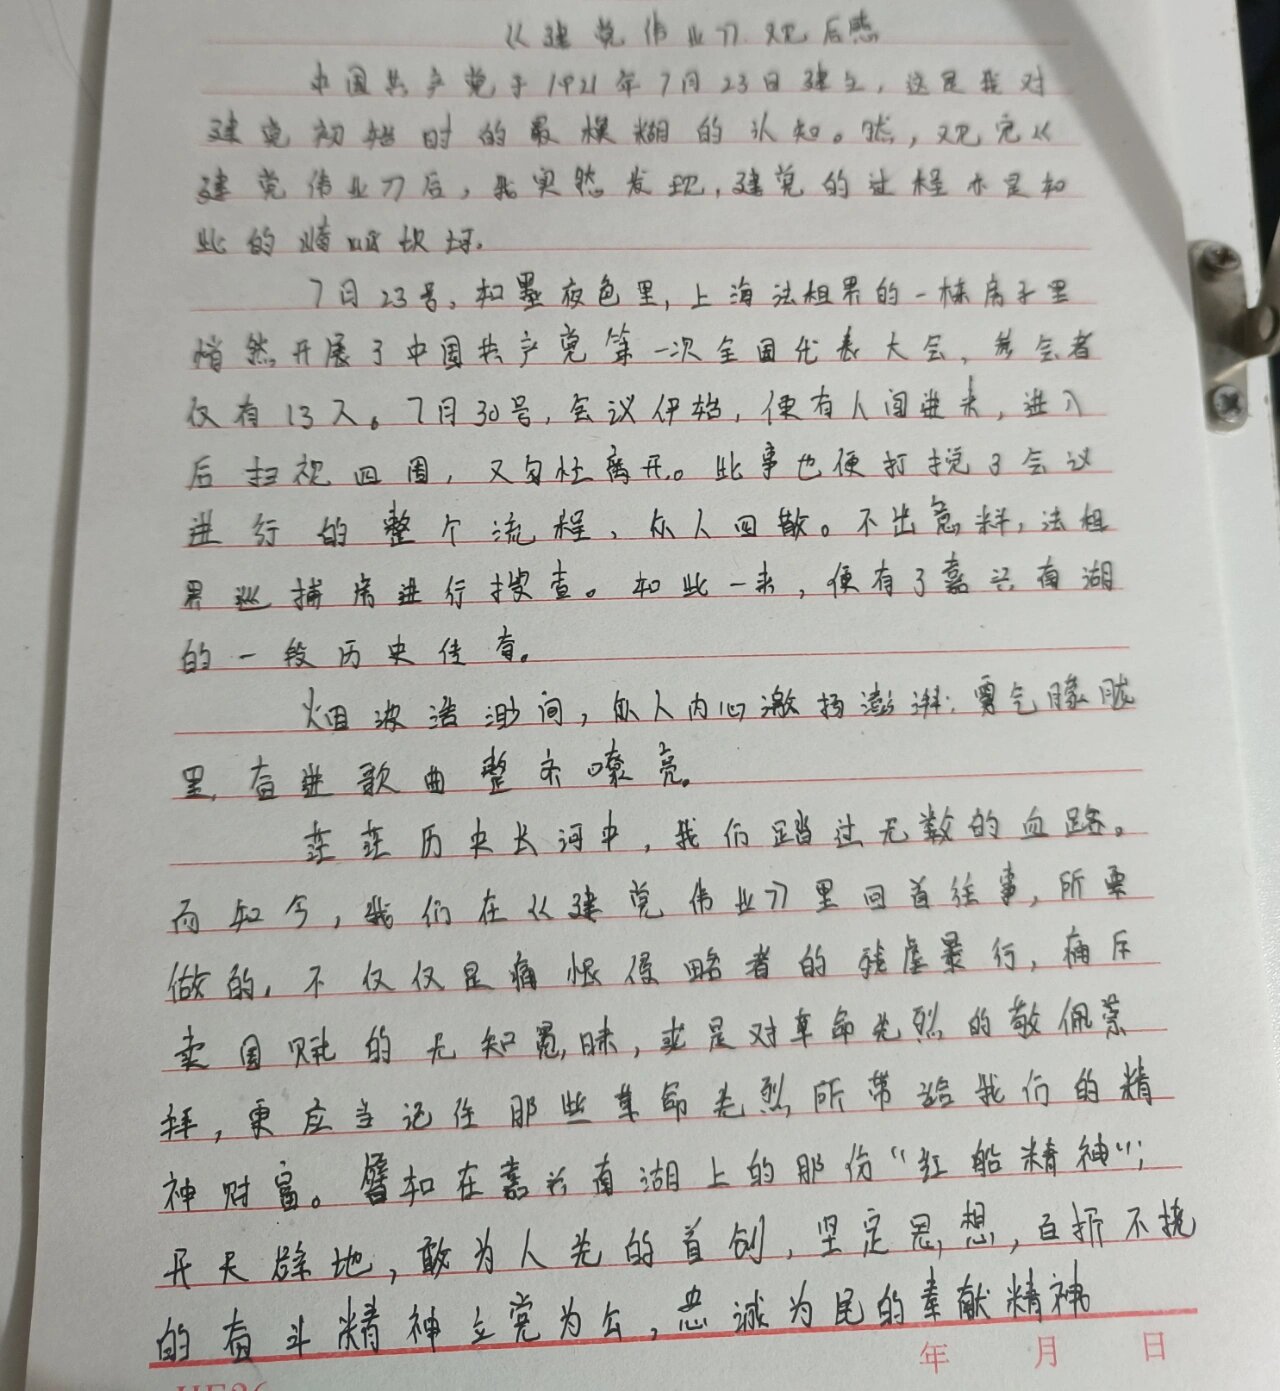 《建党伟业》观后感
中国共产党于1921年7月23日建立，这是我对
建党初始时的最模糊的认知。然，观完《
建党伟业》后，我突然发现，建党的过程亦是如
此的崎岖坎坷。
7月23号，如墨夜色里，上海法租界的一栋房子里
悄然开展了中国共产党第一次全国代表大会，参会者
仅有13人。7月30号，会议伊始，便有人闯进来，进入
后扫视四周，又匆忙离开。此事也便打扰了会议
进行的整个流程，众人四散。不出意料，法租
界巡捕房进行搜查。如此一来，便有了嘉兴南湖
的一段历史传奇。
烟波浩渺间，众人内心激扬澎湃；雾气朦胧
里，奋进歌曲整齐嘹亮。
茫茫历史长河中，我们踏过无数的血路。
而如今，我们在《建党伟业》里回首往事，所要
做的，不仅仅是痛恨侵略者的残虐暴行，痛斥
卖国贼的无知愚昧，或是对革命先烈的敬佩崇
拜，更应当记住那些革命先烈所带给我们的精
神财富。譬如在嘉兴南湖上的那份“红船精神”；
开天辟地，敢为人先的首创，坚定思想，百折不挠
的奋斗精神立党为公，忠诚为民的奉献精神
年 月 日